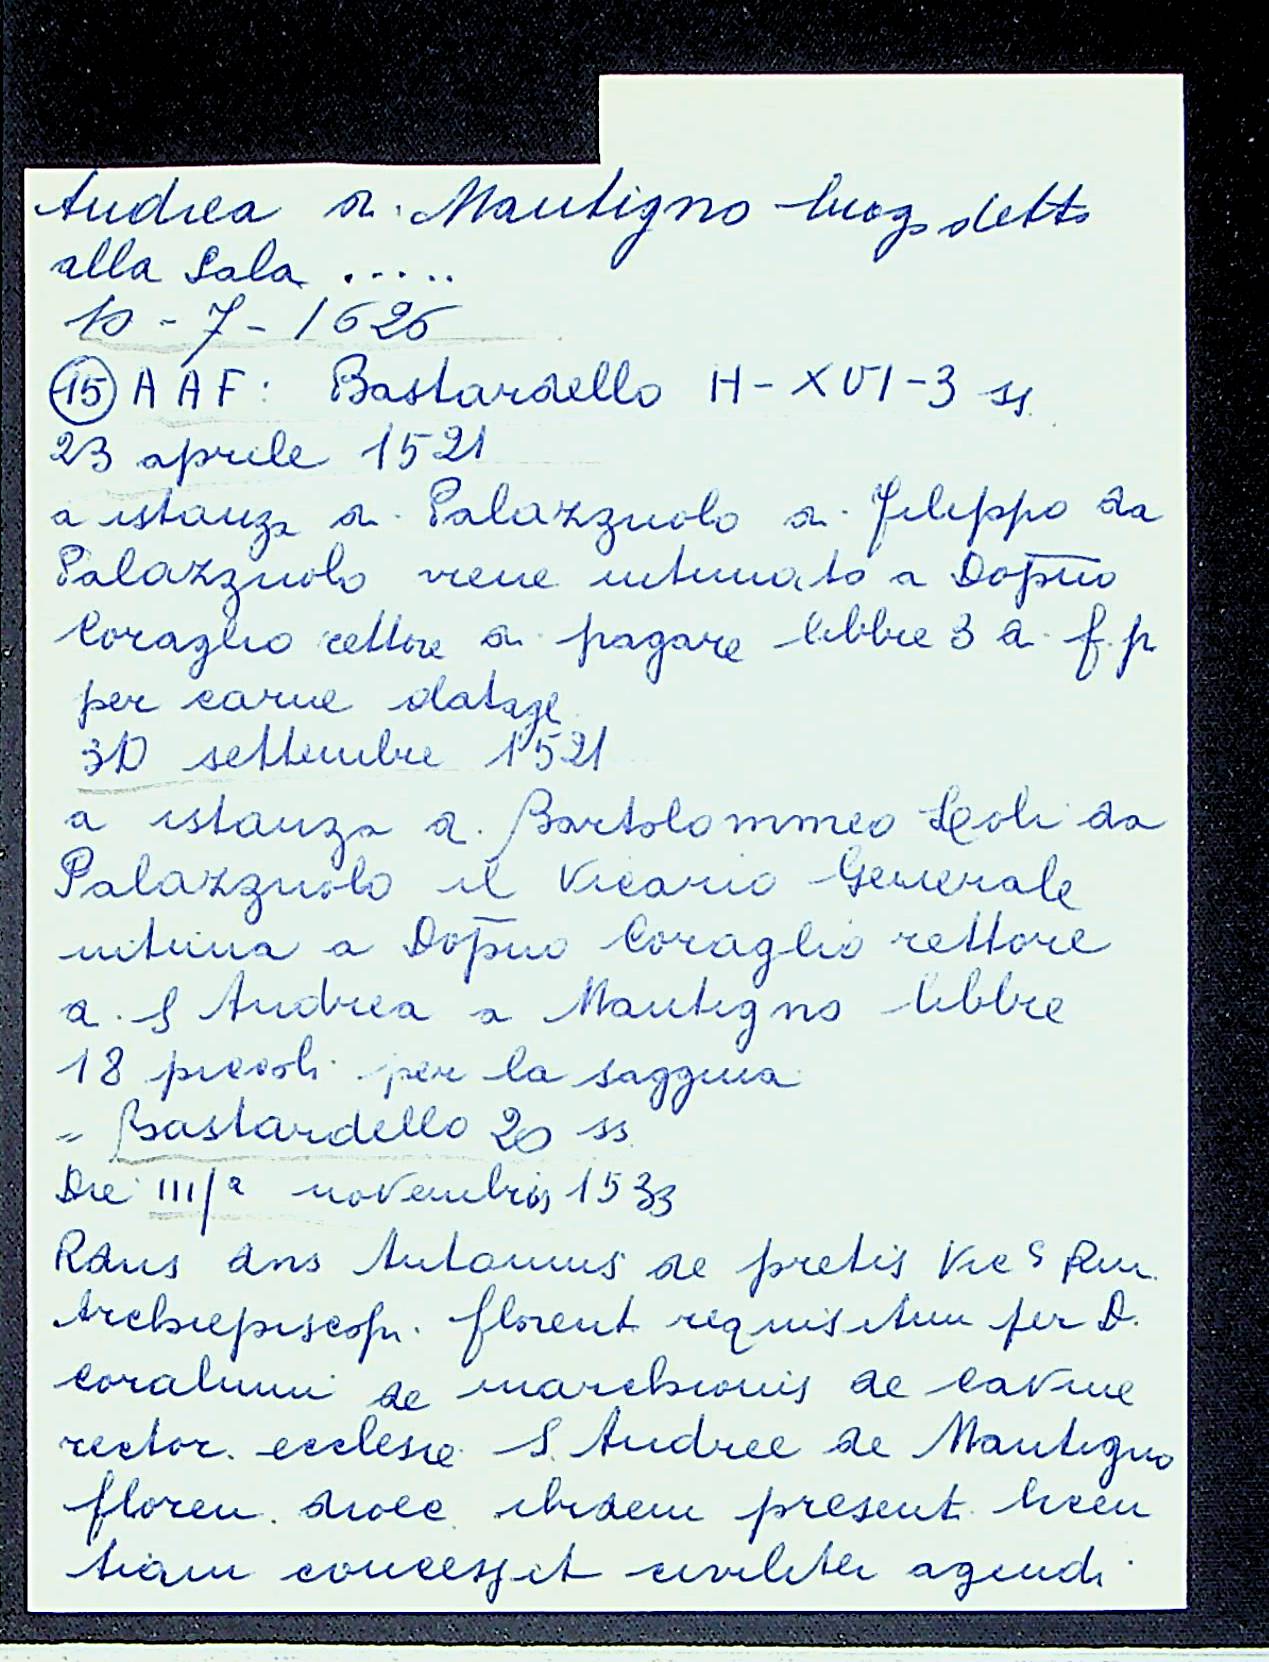 Andrea di Mantigno luogo detto
alla Sala .....
10-7-1626
(15) A A F: Bastardello H-XVI-3 ss
23 aprile 1521
a istanza di Palazzuolo di Filippo da
Palazzuolo viene intimato a Dopno
Coraglio rettore di pagare libbre 3 di f.p
per carne datagl
30 settembre 1521
a istanza di Bartolommeo da
Palazzuolo il Vicario Generale
intima a Dopno Coraglio rettore
di S Andrea a Mantigno libbre
18 piccoli per la saggina
= Bastardello 20 ss
Die III/a novembris 1533
Rdus dns Antonius de pretis Vic s Rm.
Archiepiscopi. florent requisitum per D.
coralium de marchionis de cavine
rector. ecclesie S. Andree de Mantigno
floren. dioec. ibidem present. licen
tiam concessit civiliter agendi